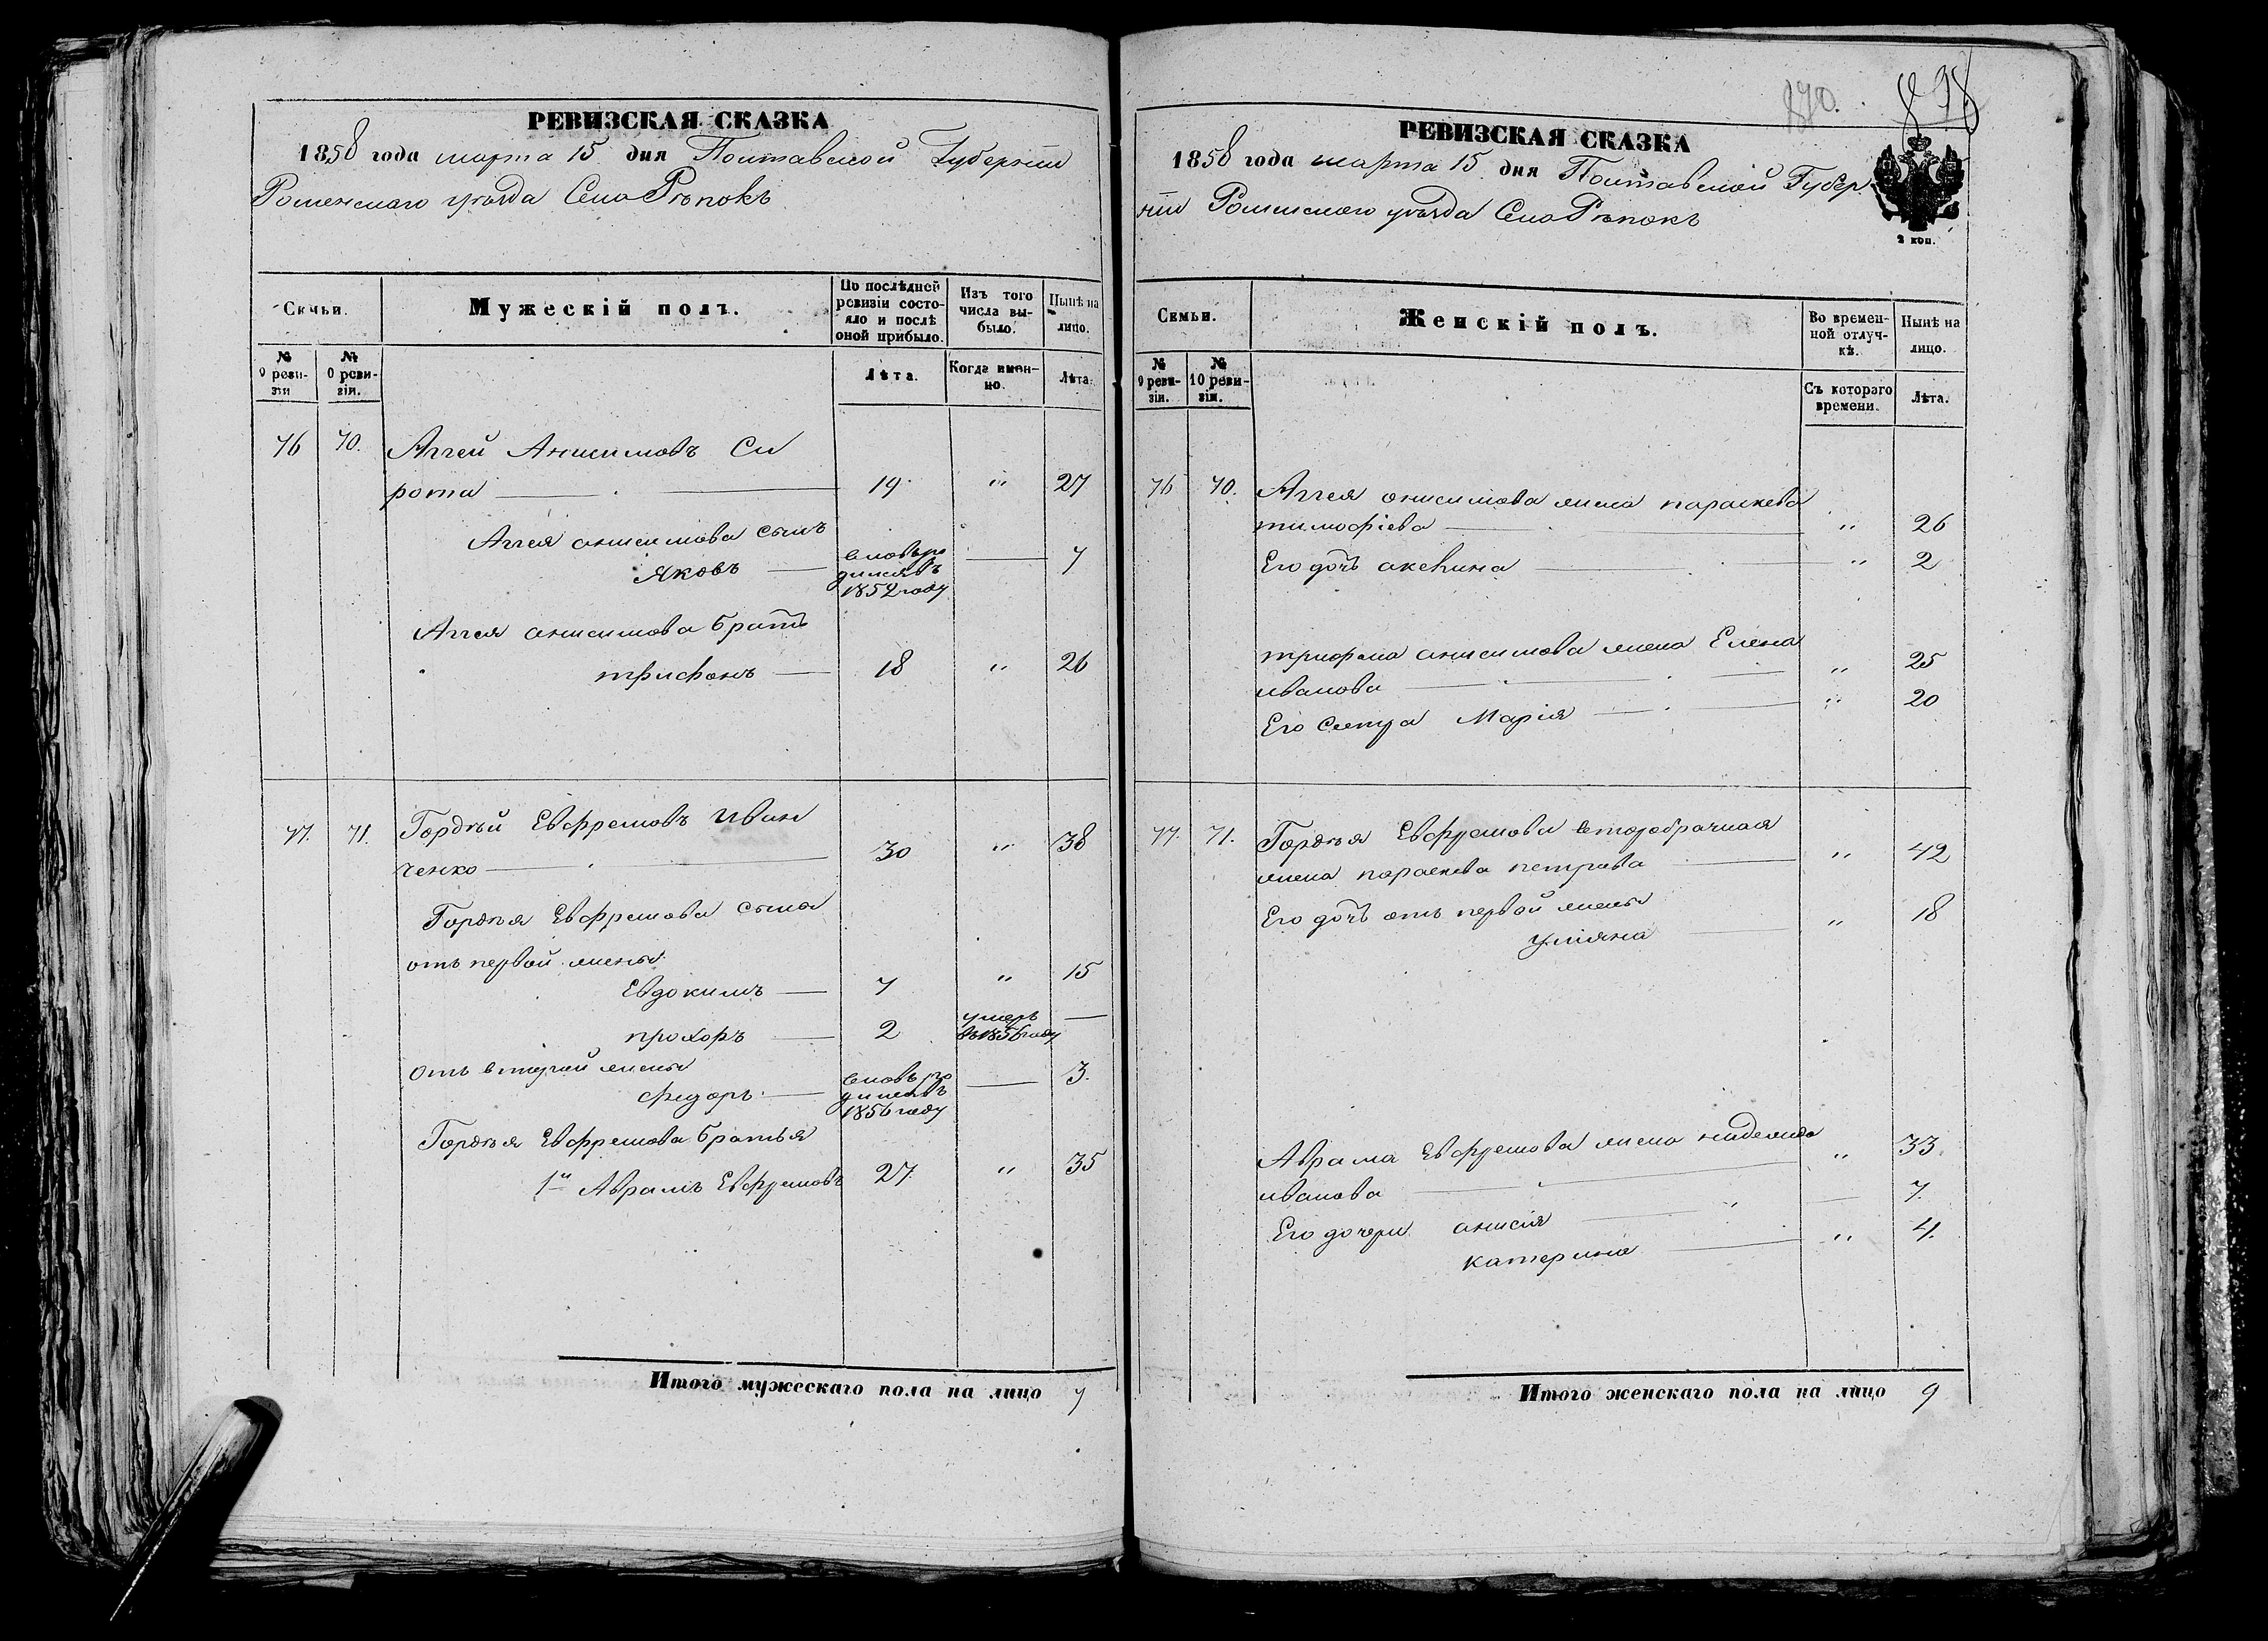 РЕВИЗСКАЯ СКАЗКА
1858 года марта 15 дня Полтавской Губернiи
Роменского уѣзда Село Рѣпокъ
Семьи.
Мужескій полъ.
По послѣдней ревизіи состояло и послѣ оной прибыло.
Изъ того числа выбыло.
Нынѣ на лицо.
№ 9 ревизіи
№ 10 ревизіи.
Лѣта.
Когда именно.
Лѣта.
76 70. Аггей Анисимовъ Си
рота 19 " 27
Аггея анисимова сынъ
Яковъ вновь родился въ 1852 году 7
Аггея анисимова братъ
трифонъ 18 " 26
77. 71. Гордѣй Евфремовъ Иван
ченко 30 " 38
Гордѣя Евфремова сына
отъ первой жены
Евдокимъ 7 " 15
прохоръ 2 умеръ въ 1856 году
Отъ второй жены
федоръ вновь родился въ 1856 году 3.
Гордѣя Евфремова братья
1й Аврамъ Евфремовъ 27. " 35
Итого мужескаго пола на лицо 7
870.
РЕВИЗСКАЯ СКАЗКА
1858 года марта 15 дня Полтавской Губер
нiи Роменского уѣзда Село Рѣпокъ
2 коп.
Семьи.
Женскій полъ.
Во временной отлучкѣ.
Нынѣ на лицо.
№ 9 ревизіи.
№ 10 ревизіи.
Съ котораго времени.
Лѣта.
76 70. Аггея анисимова жена параскева
тимофіева " 26
Его дочь аксенина " 2
трифона анисимова жена Елена
иванова " 25
Его Сестра Марія " 20
77. 71. Гордѣя Евфремова второбрачная
жена параскева петрова " 42
Его дочь отъ первой жены
уліяна " 18
Аврама Евфремова жена надежда
иванова " 33
Его дочери анисія 7.
катерина " 4.
Итого женскаго пола на лицо 9